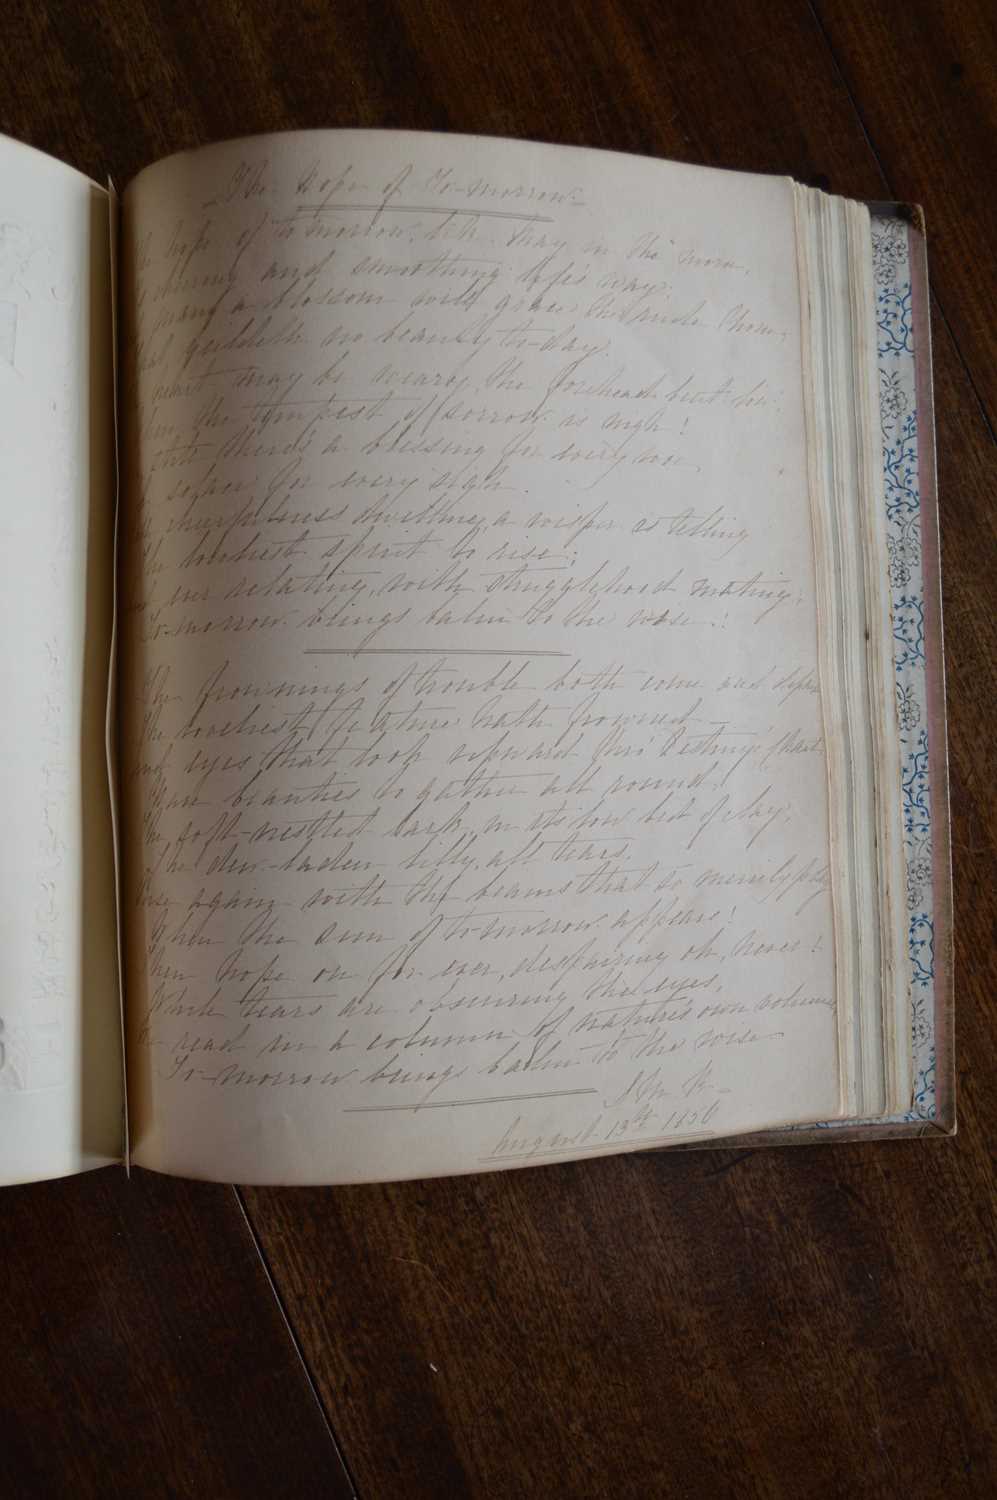 The Hope of To-morrow
hope of to morrow, like May in the morn,
and smoothing life's way;
many a blossom will grace the rude thorn,
gildeth no beauty to-day.
heart may be weary, the forehead bent low,
the tempest of sorrow is nigh!
there's a blessing for every woe
solace for every sigh.
cheerfulness dwelling, a wisper is telling
The lowliest spirit to rise;
ever relating, with struggle hard mating,
To-morrow brings balm to the wise!
The frownings of trouble both come and depart
The loveliest feature hath frowned —
And eyes that look upward thro' Destiny's chart
Have beauties to gather all round.
The soft-nestled lark, in its low bed of clay,
The dew-laden lilly, all tears.
Rise again with the beams that so merrily play
When the sun of to-morrow appears!
Then hope on for ever, despairing oh, never!
While tears are obscuring the eyes,
read in a column of nature's own volume,
To-morrow brings balm to the wise
August 13th 1856